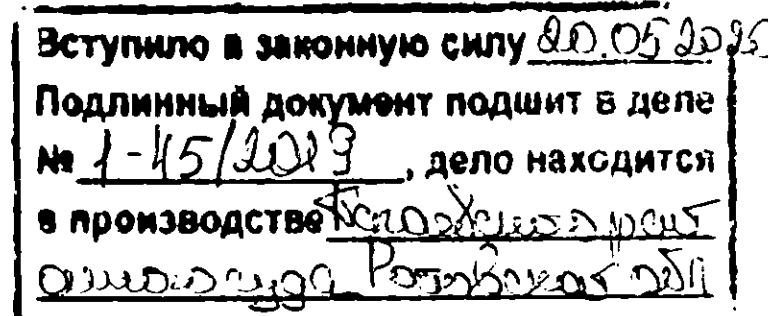 Вступило в законную силу 20.05.2025
Подлинный документ подшит в деле
№ 1-45/2019, дело находится
в производстве
суда Ростовской обл